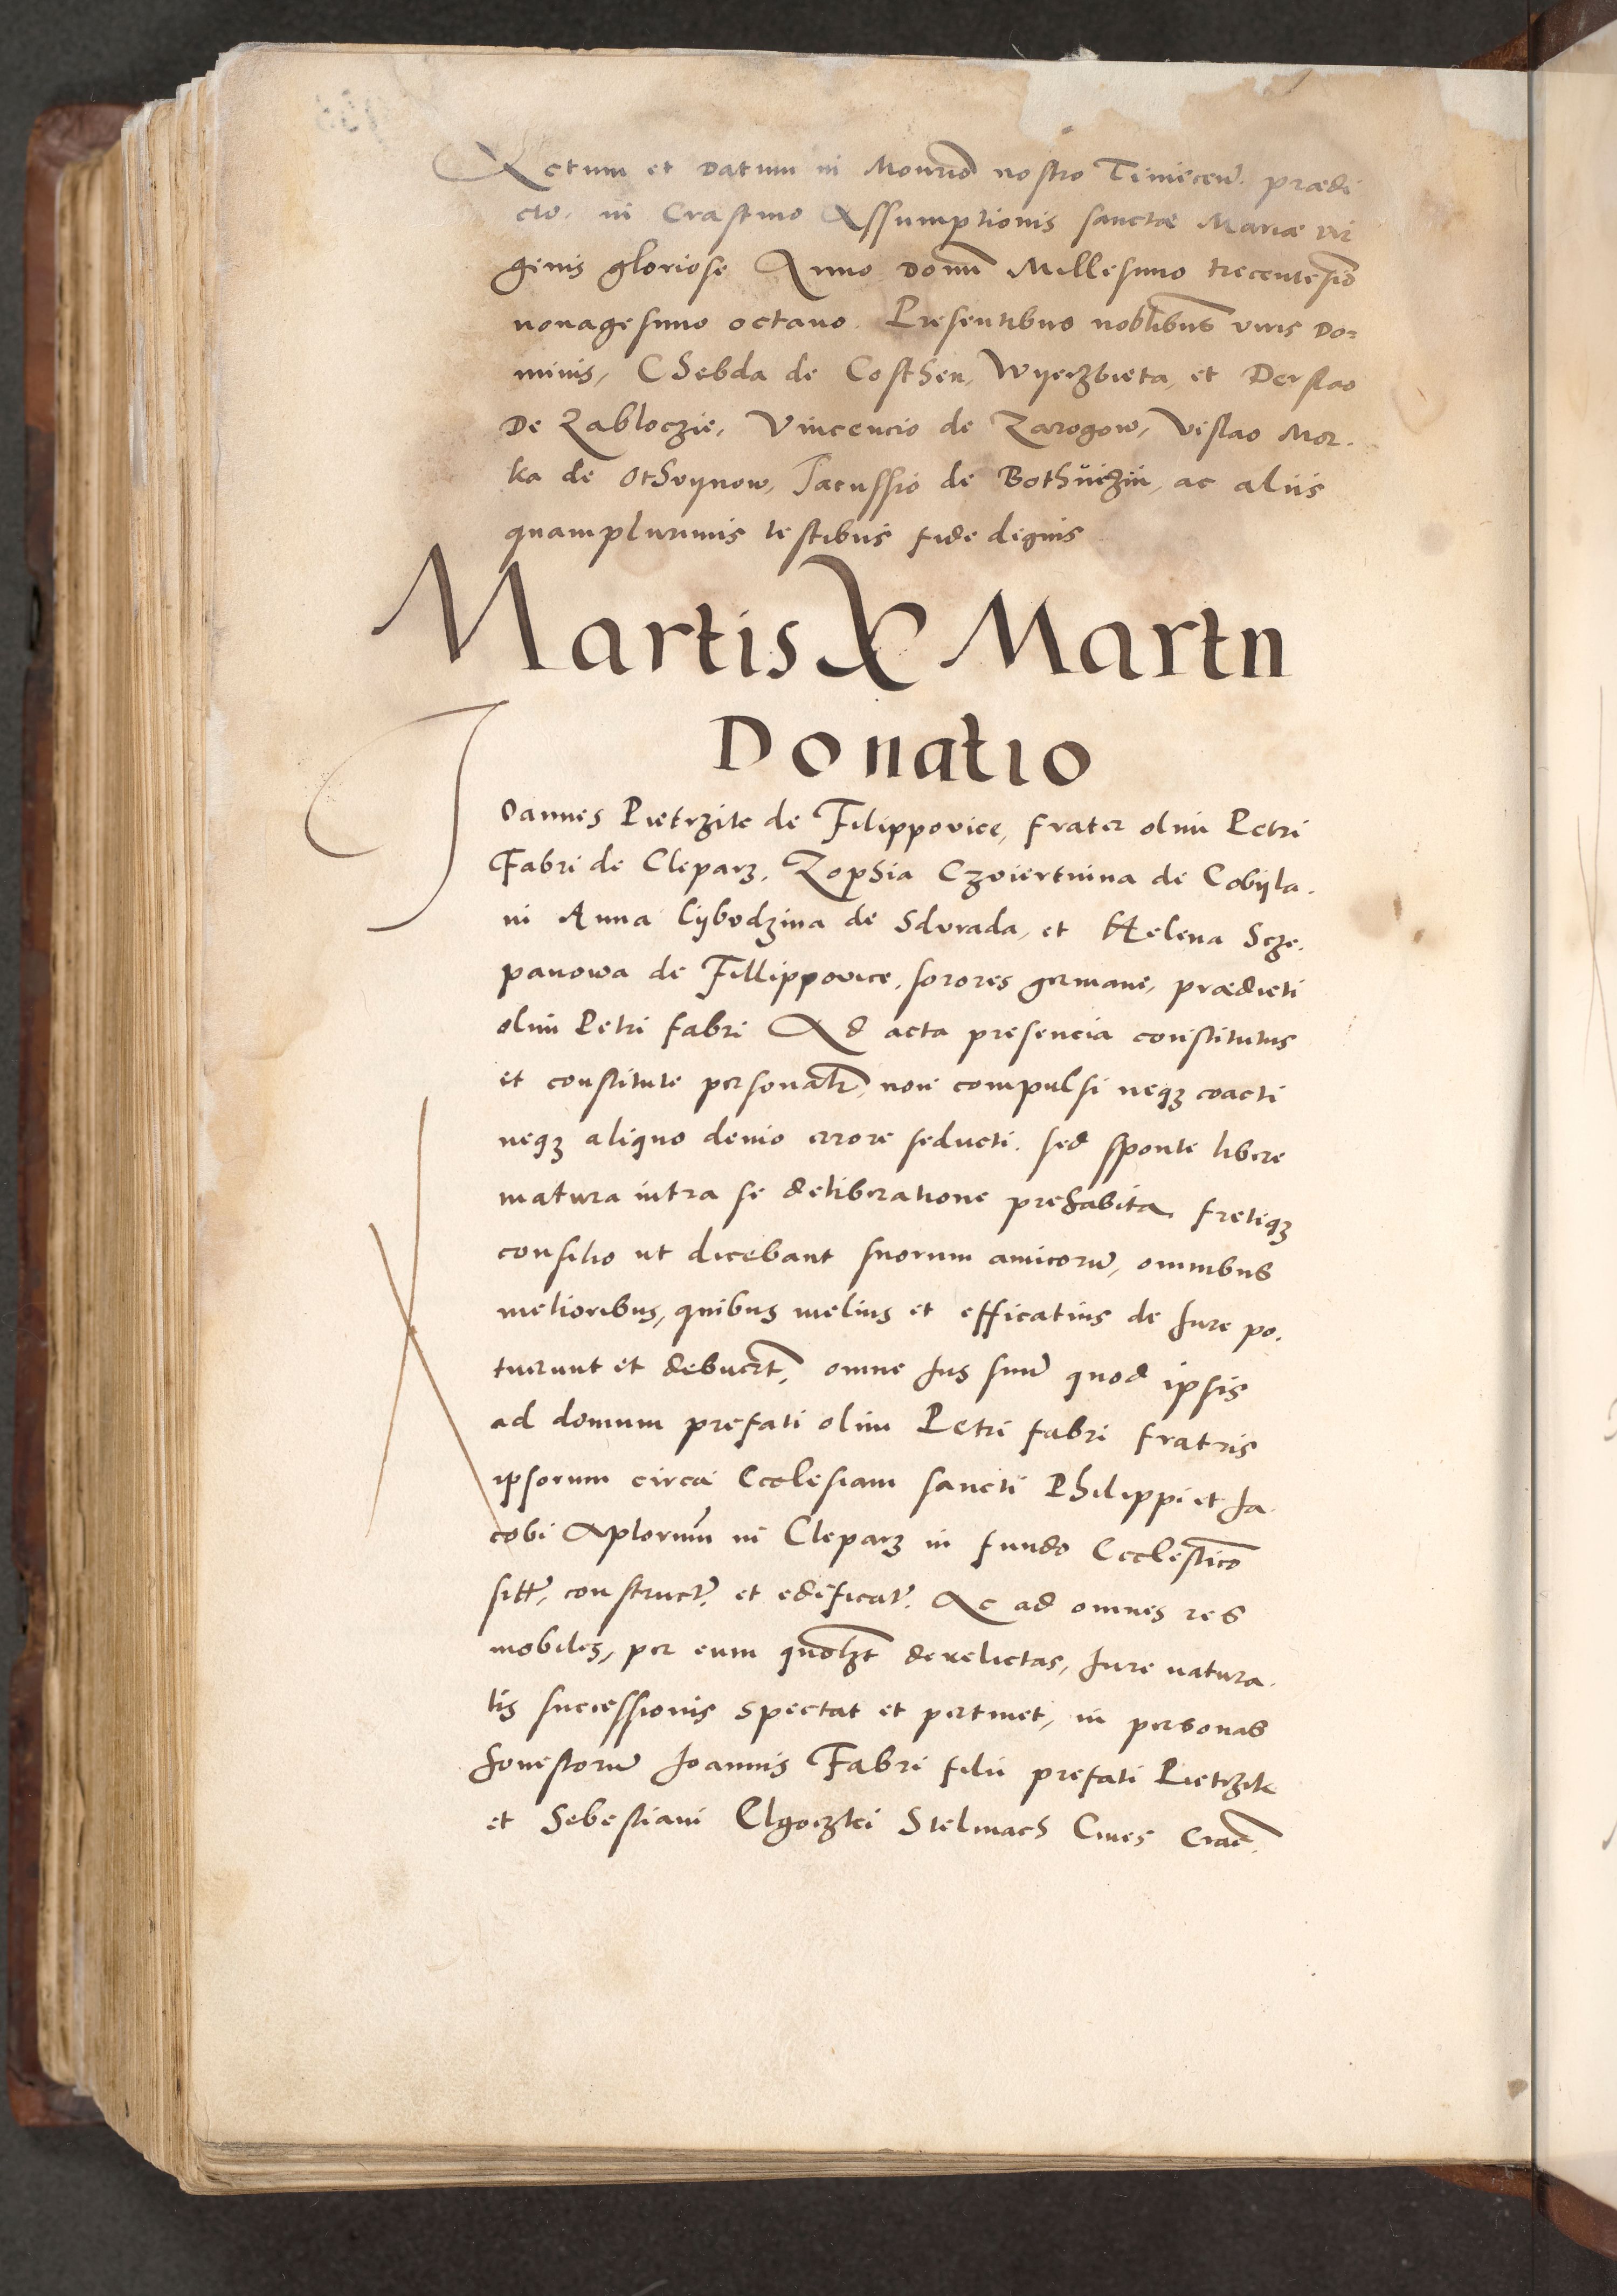 Actum et Datum in Monrio nostro Tiniecen. prædi
cto. in Crastino Assumptionis sanctæ Mariæ vir
ginis gloriose Anno Domi Millesimo trecentesio
nonagesimo octavo. Presentibus nobilibus viris Do=
minis, Chebda de Costhen, Wyerzbieta, et Derslao
De Zabloczie, Vincencio de Zarogow, Veslao Mor.
ka de Othvynow, Jacussio de Bothuiczin, ac aliis
quamplurimis testibus fide dignis
Martis X Martii
Donatio
Joannes Pietrzik de Filippovice, frater olim Petri
Fabri de Cleparz. Zophia Czviertnina de Cobyla.
ni Anna Cybodzina de Sdvrada, et Helena Scze.
panowa de Fillippovice. sorores germane, prædicti
olim Petri fabri Ad acta presencia constitutus
et constitute personalr, non compulsi neqz coacti
neqz aliquo devio errore seducti. sed sponte libere
matura intra se deliberatione prehabita. fretiqz
consilio ut dicebant suorum amicoru, omnibus
melioribus, quibus melius et efficatius de Jure po.
tuerunt et debuert, omne Jus suum quod ipsis
ad domum prefati olim Petri fabri fratris
ipsorum circa Ecclesiam sancti Philippi et Ja.
cobi Aplorum in Cleparz in fundo Ecclestico
sitt, constructr. et edificatr. Ac ad omnes res
mobiles, per eum quolzt derelictas, Jure natura.
lis successionis spectat et pertinet, in personas
honestoru Joannis Fabri filii prefati Pietrzik
et Sebestiani Elgoczki Stelmach Cives Crac.